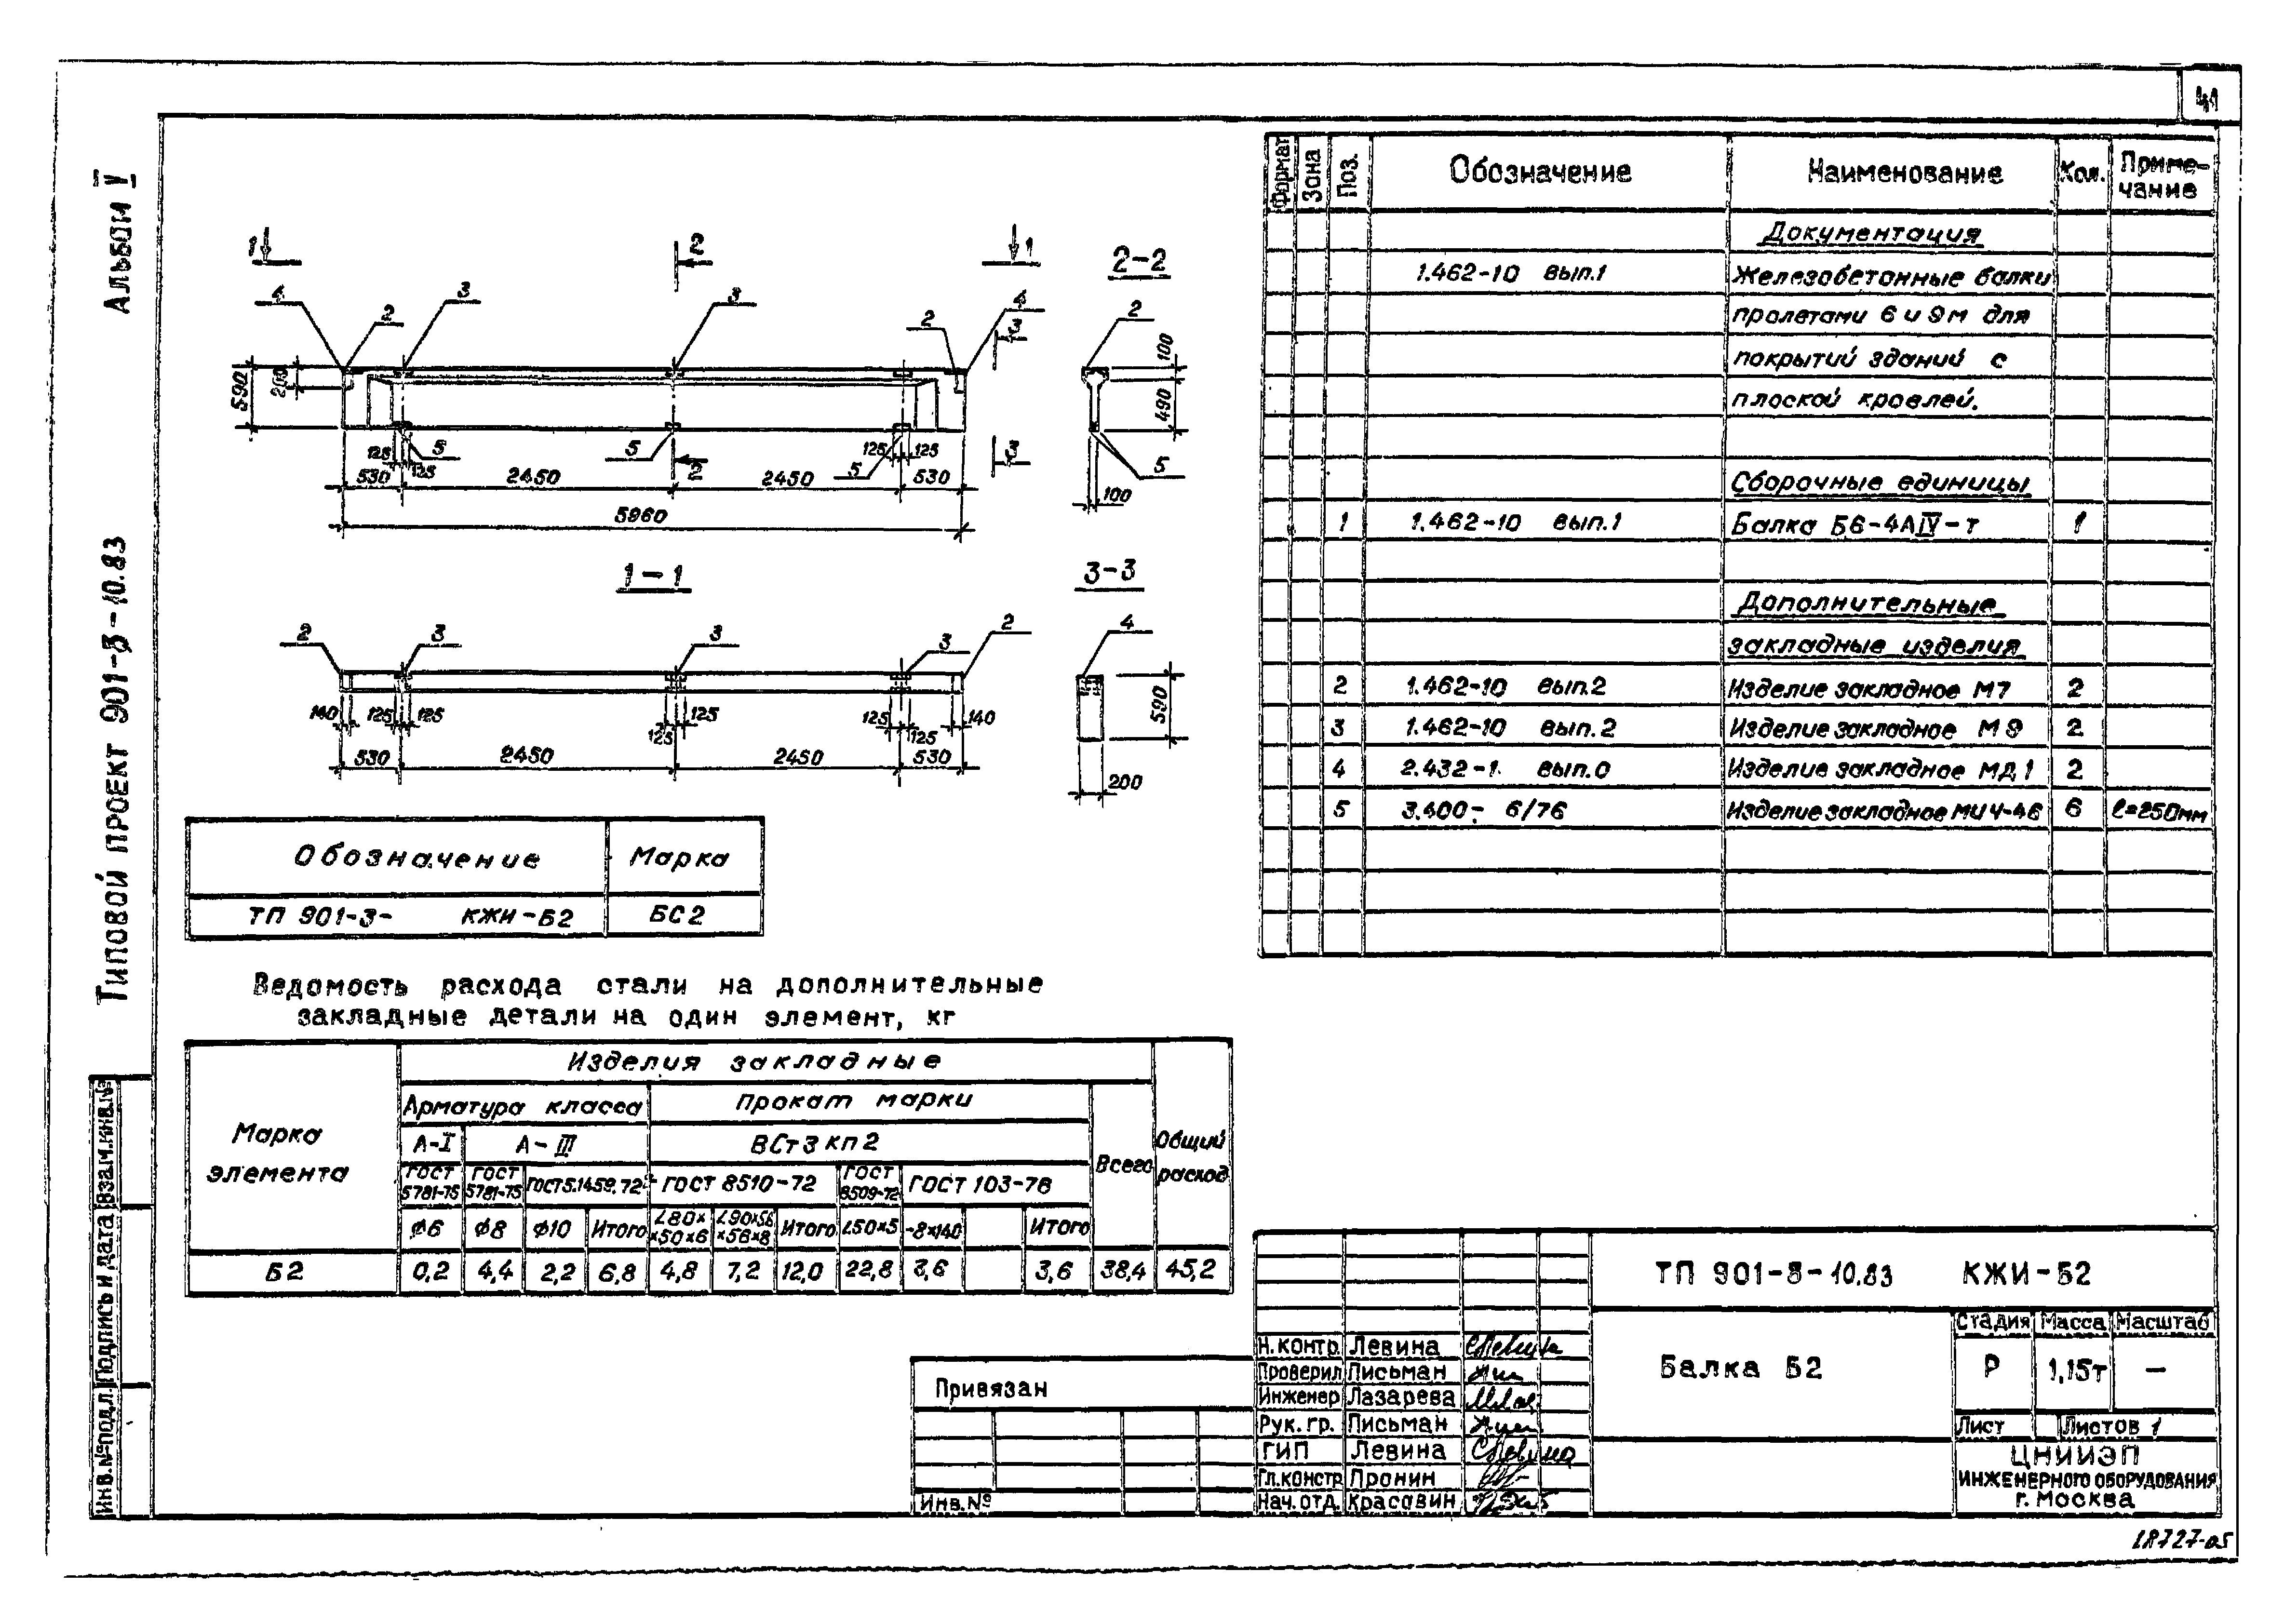 41
Альбом V
Типовой проект 901-3-10.83
1 2 1
4 2 3 3 2 4 3
590 200
125 5 125 5 125 5 125 3
530 2450 2 2450 530
5960
2-2
2
100
490
5
100
1-1
2 3 3 3 2
140 125 125 125 125 125 125 140
530 2450 2450 530
3-3
4
590
200
Обозначение Марка
ТП 901-3- КЖИ-Б2 БС2
Ведомость расхода стали на дополнительные
закладные детали на один элемент, кг
Марка элемента Изделия закладные Общий расход
Арматура класса Прокат марки Всего
А-I А-III ВСт3кп2
ГОСТ 5781-75 ГОСТ 5781-75 ГОСТ5.1459.72* ГОСТ 8510-72 ГОСТ 8509-72 ГОСТ 103-76
ϕ6 ϕ8 ϕ10 Итого ∠80××50×6 ∠90×56×56×8 Итого ∠50×5 -8×140 Итого
Б2 0,2 4,4 2,2 6,8 4,8 7,2 12,0 22,8 3,6 3,6 38,4 45,2
Формат Зона Поз. Обозначение Наименование Кол. Приме-чание
Документация
1.462-10 вып.1 Железобетонные балки
пролетами 6 и 9м для
покрытий зданий с
плоской кровлей.
Сборочные единицы
1 1.462-10 вып.1 Балка Б6-4АIV-т 1
Дополнительные
закладные изделия
2 1.462-10 вып.2 Изделие закладное М7 2
3 1.462-10 вып.2 Изделие закладное М9 2
4 2.432-1. вып.0 Изделие закладное МД1 2
5 3.400- 6/76 Изделие закладное МИ4-46 6 ℓ=250мм
ТП 901-3-10.83 КЖИ-Б2
Балка Б2
Стадия Масса Масштаб
Р 1,15т —
Лист Листов 1
ЦНИИЭП
инженерного оборудования
г. Москва
Н.контр. Левина
Проверил Письман
Инженер Лазарева
Рук. гр. Письман
ГИП Левина
Гл.констр Пронин
Нач.отд. Красавин
Привязан
Инв.№
Инв.№подл. Подпись и дата Взам.инв.№
18727-05